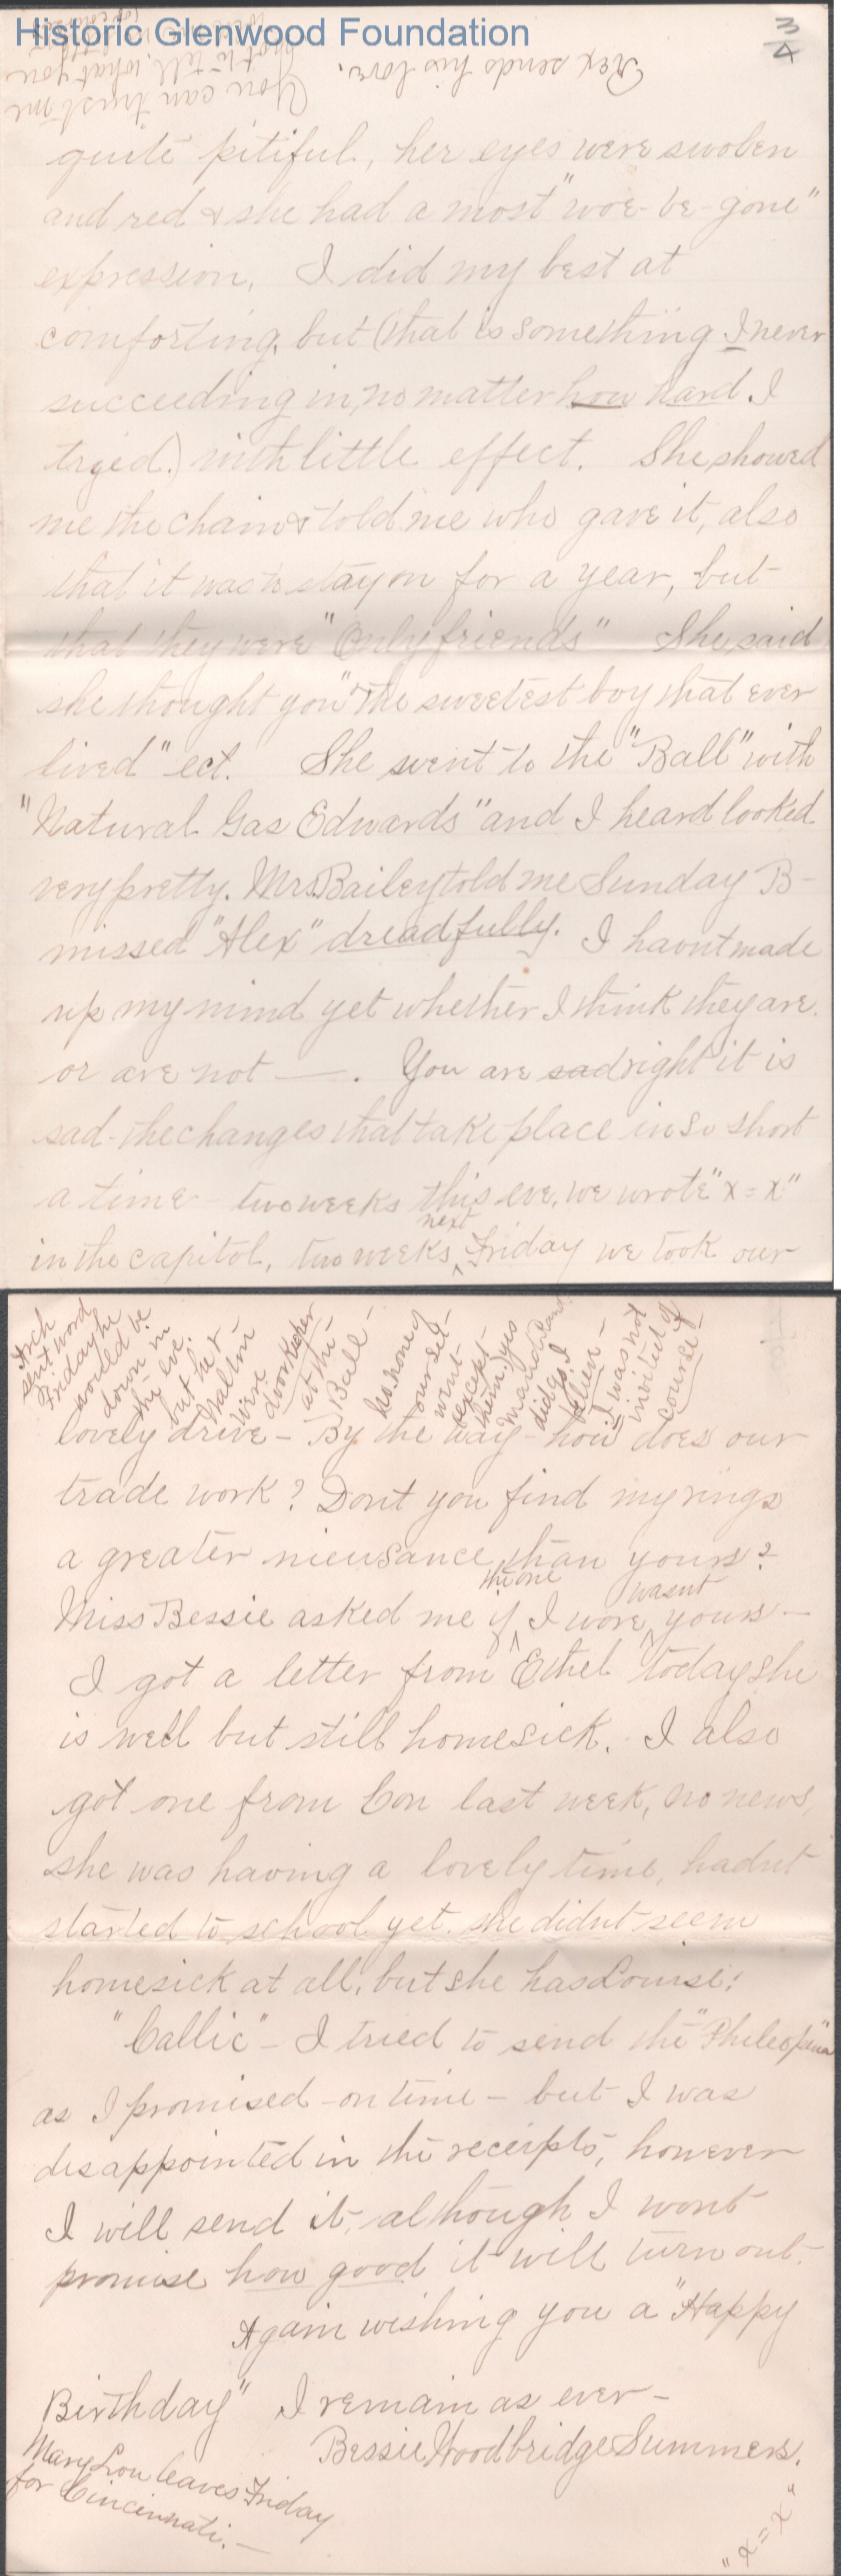 Historic Glenwood Foundation
3/4
Rex sends his love.
You can trust me
not to tell what you
quite pitiful, her eyes were swolen
and red & she had a most "woe-be-gone"
expression. I did my best at
comforting, but (that is something I never
succeeding in, no matter how hard I
tryed.) with little effect. She showed
me the chain & told me who gave it, also
that it was to stay on for a year, but
that they were "Only friends" She said
she thought you "the sweetest boy that ever
lived" ect. She went to the "Ball" with
"Natural Gas Edwards" and I heard looked
very pretty. Mrs. Bailey told me Sunday B-
missed "Alex" dreadfully. I havnt made
up my mind yet whether I think they are
or are not —. You are sad right it is
sad- the changes that take place in so short
a time - two weeks this eve. we wrote "x = x"
next
in the capitol, two weeks ^ Friday we took our
Arch
sent word
Friday he
would be
down in
the eve.
but he &
Walton
were
doorkeeper
at the
Ball-
no none of
our set-
went-
except-
them. yes
Maud
did go I
believe-
I was not
invited of
course-
lovely drive - By the way - how does our
trade work? Dont you find my rings
a greater nieusance than yours?
the one wasnt
Miss Bessie asked me if ^ I wore ^ yours -
I got a letter from Ethel today she
is well but still homesick. I also
got one from Con last week, no news,
she was having a lovely time, hadnt
started to school yet. she didnt seem
homesick at all, but she has Louise!
"Callie" - I tried to send the "Phileopena"
as I promised - on time - but I was
disappointed in the receipts, however
I will send it, although I wont
promise how good it will turn out.
Again wishing you a "Happy
Birthday" I remain as ever -
Bessie Woodbridge Summers.
Mary Lou leaves Friday
for Cincinnati. -
"x = x"